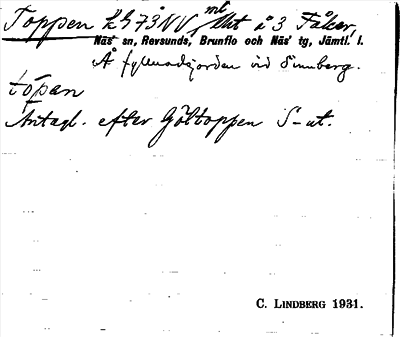 Toppen
å 3 Fåker,
Näs sn, Revsunds, Brunflo och Näs tg, Jämtl. l.
Å fyllnadsjorden vid Sunnberg.
tópan
Antagl. efter Göltoppen S-ut.
C. LINDBERG 1931.